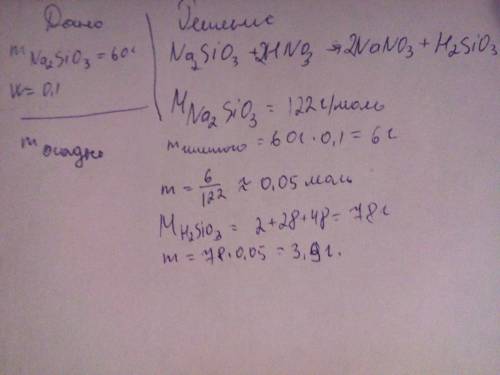 Дано
m Na2SiO3 = 60г
W = 0,1
m осадка
Решение
Na2SiO3 + 2HNO3 → 2NaNO3 + H2SiO3
M Na2SiO3 = 122 г/моль
m чистого = 60г · 0,1 = 6г
m = 6/122 ≈ 0,05 моль
M H2SiO3 = 2+28+48 = 78г
m = 78·0,05 = 3,9г.